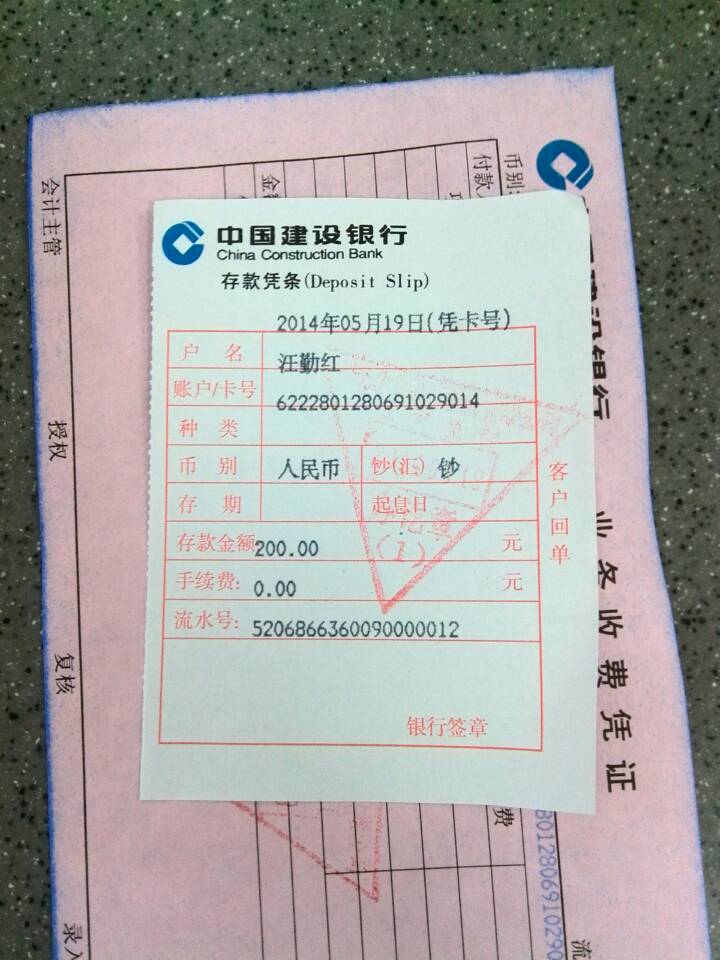 中国建设银行
China Construction Bank
存款凭条(Deposit Slip)
2014年05月19日(凭卡号)
户 名 汪勤红
账户/卡号 6222801280691029014
种 类
币 别 人民币 钞(汇) 钞
存 期 起息日
存款金额 200.00 元
手续费: 0.00 元
流水号: 5206866360090000012
银行签章
客户回单
(1)
币别:
付款人
会计主管
授权
复核
录入
业务收费凭证
费
流